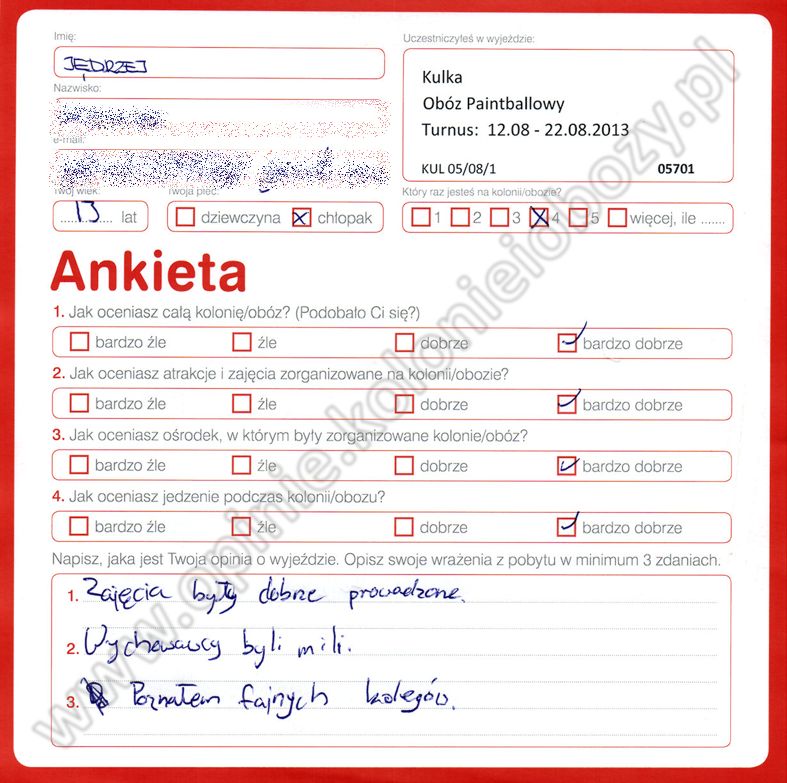 Imię:
Uczestniczyłeś w wyjeździe:
JĘDRZEJ
Kulka
Obóz Paintballowy
Turnus: 12.08 - 22.08.2013
KUL 05/08/1 05701
Nazwisko:
e-mail:
Twój wiek: Twoja płeć: Który raz jesteś na kolonii/obozie?
13 lat dziewczyna chłopak 1 2 3 4 5 więcej, ile .......
Ankieta
1. Jak oceniasz całą kolonię/obóz? (Podobało Ci się?)
bardzo źle źle dobrze bardzo dobrze
2. Jak oceniasz atrakcje i zajęcia zorganizowane na kolonii/obozie?
bardzo źle źle dobrze bardzo dobrze
3. Jak oceniasz ośrodek, w którym były zorganizowane kolonie/obóz?
bardzo źle źle dobrze bardzo dobrze
4. Jak oceniasz jedzenie podczas kolonii/obozu?
bardzo źle źle dobrze bardzo dobrze
Napisz, jaka jest Twoja opinia o wyjeździe. Opisz swoje wrażenia z pobytu w minimum 3 zdaniach.
1. Zajęcia były dobrze prowadzone.
2. Wychowawcy byli mili.
3. Poznałem fajnych kolegów.
www.opinie.kolonieiobozy.pl